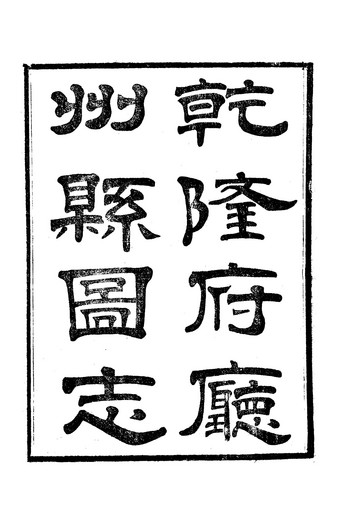 乾隆府廳
州縣圖志